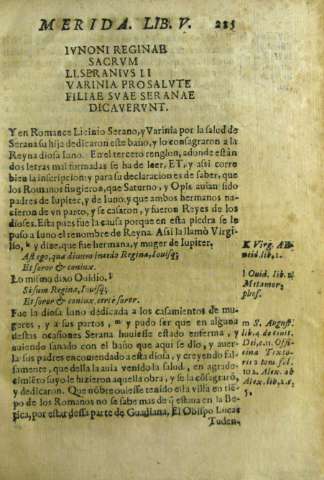 MERIDA. LIB. V. 225
IVNONI REGINAE
SACRVM
LI. SERANIVS II
VARINIA PRO SALVTE
FILIAE SVAE SERANAE
DICAVERVNT.
Y en Romance Licinio Serano, y Varinia por la salud de
Serana su hija dedicaron este baño, y lo consagraron a la
Reyna diosa Iuno. En el tercero renglon, adonde están
dos letras mal formadas se ha de leer, ET, y assi corre
bien la inscripcion; y para su declaracion es de saber, que
los Romanos fingieron, que Saturno, y Opis auian sido
padres de Iupiter, y de Iuno; y que ambos hermanos na-
cieron de vn parto, y se casaron, y fueron Reyes de los
dioses. Esta pues fue la causa porque en esta piedra se le
puso a Iuno el renombre de Reyna. Assi la llamò Virgi-
lio, k y dize, que fue hermana, y muger de Iupiter,
Ast ego, quæ diuum incedo Regina, Iouisq;
Et soror & coniux.
Lo mismo dixo Ouidio. l
Si sum Regina, Iouisq;
Et soror & coniux, certè soror.
Fue la diosa Iuno dedicada a los casamientos de mu-
geres, y a sus partos, m y pudo ser que en alguna
destas ocasiones Serana huuiesse estado enferma, y
uiendo sanado con el baño que aqui se dio, y auer-
la sus padres encomendado a esta diosa, y creyendo fal-
samente, que della la auia venido la salud, en agrade-
cimiẽto suyo le hizieron aquella obra, y se la cõsagrarõ,
y dedicaron. Que nõbre ouiesse tenido esta villa en tiẽ-
po de los Romanos no se sabe mas de q̃ estaua en la Be-
tica, por estar dessa parte de Guadiana, El Obispo Lucas
Tuden.
K Virg. Æ
neid. lib. 1.
l Ouid. lib.
Metamor
phos.
m S. August.
lib. 4. de ciuit.
Dei, c. 11. Offi
cina Texto-
ris
Alex. ab
Alex. lib. 2. c.
5.